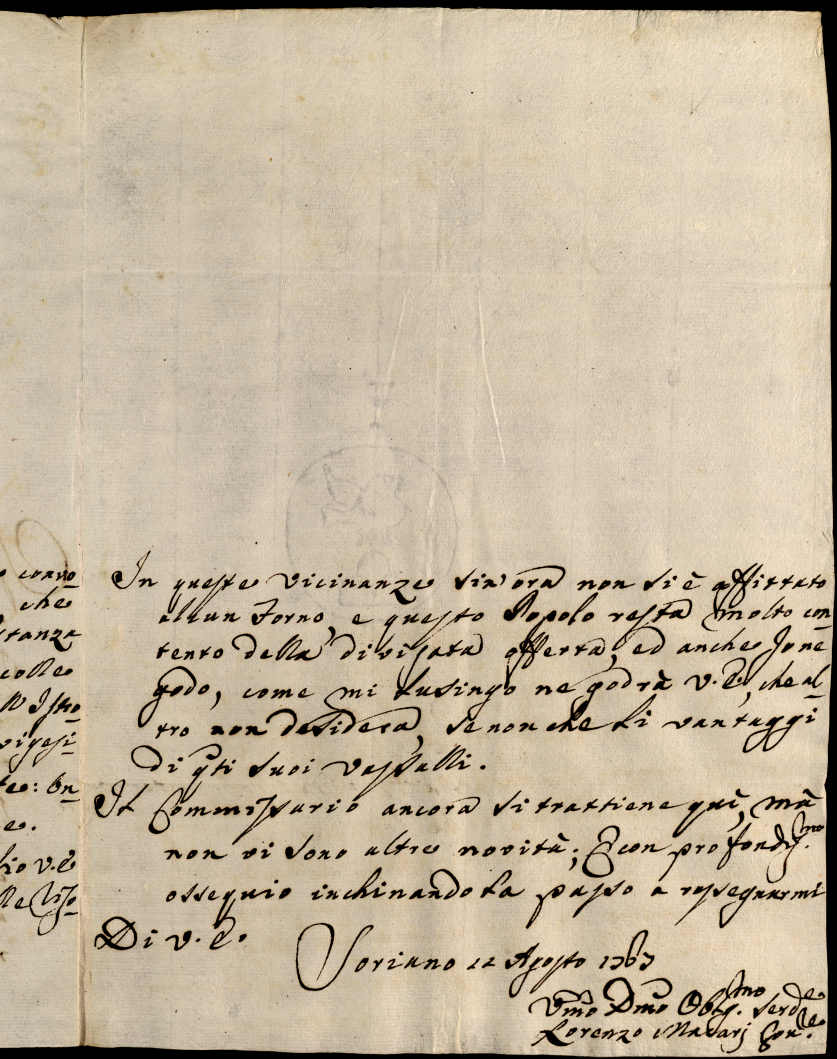 o convo
che
stanza
colle
ll'Istro
vigesi
te: On
e.
lio V.E.
In queste vicinanze sin'ora non si è affittato
alcun Forno, e questo Popolo resta molto con
tento della divisata offerta, ed anche Jo ne
godo, come mi lusingo ne godrà V. E., che al
tro non desidera, se non che li vantaggi
di qti suoi vassalli.
Il Commissario ancora si trattiene quì, mà
non vi sono altre novità; E con profondis.mo
ossequio inchinandola passo a rassegnarmi
Di V. E.
Soriano 12 Agosto 1767
Vmo Dmo Oblg.mo Serd.e
Lorenzo